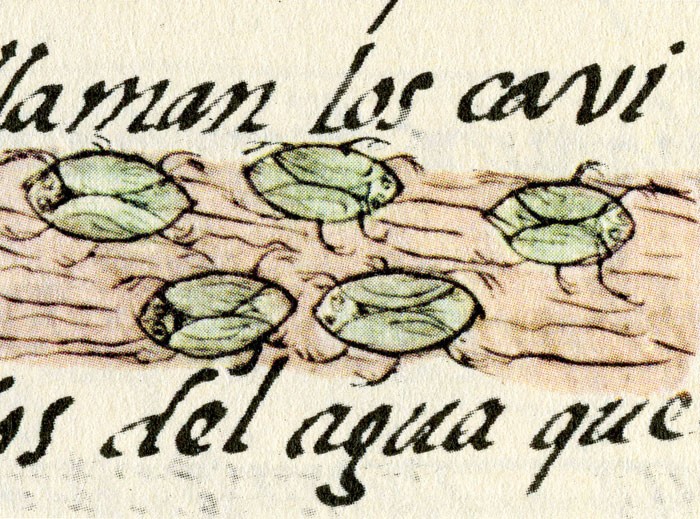 llaman los cavi
los del agua que